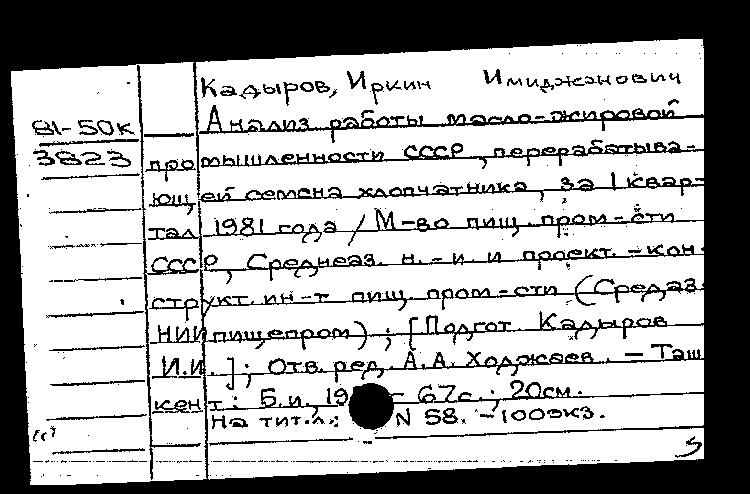 Кадыров, Иркин Имиджанович
81-50к Анализ работы масло-жировой
3823 промышленности СССР, перерабатыва-
ющей семена хлопчатника, за I квар-
тал 1981 года / М-во пищ. пром-сти
СССР, Среднеаз. н.-и. и проект.-кон-
структ. ин-т пищ. пром-сти (Средаз-
НИИпищепром) ; [Подгот. Кадыров
И.И.] ; Отв. ред. А.А. Ходжаев. - Таш
кент : Б.и., 67с. ; 20см.
На тит.л.: N 58. - 100экз.